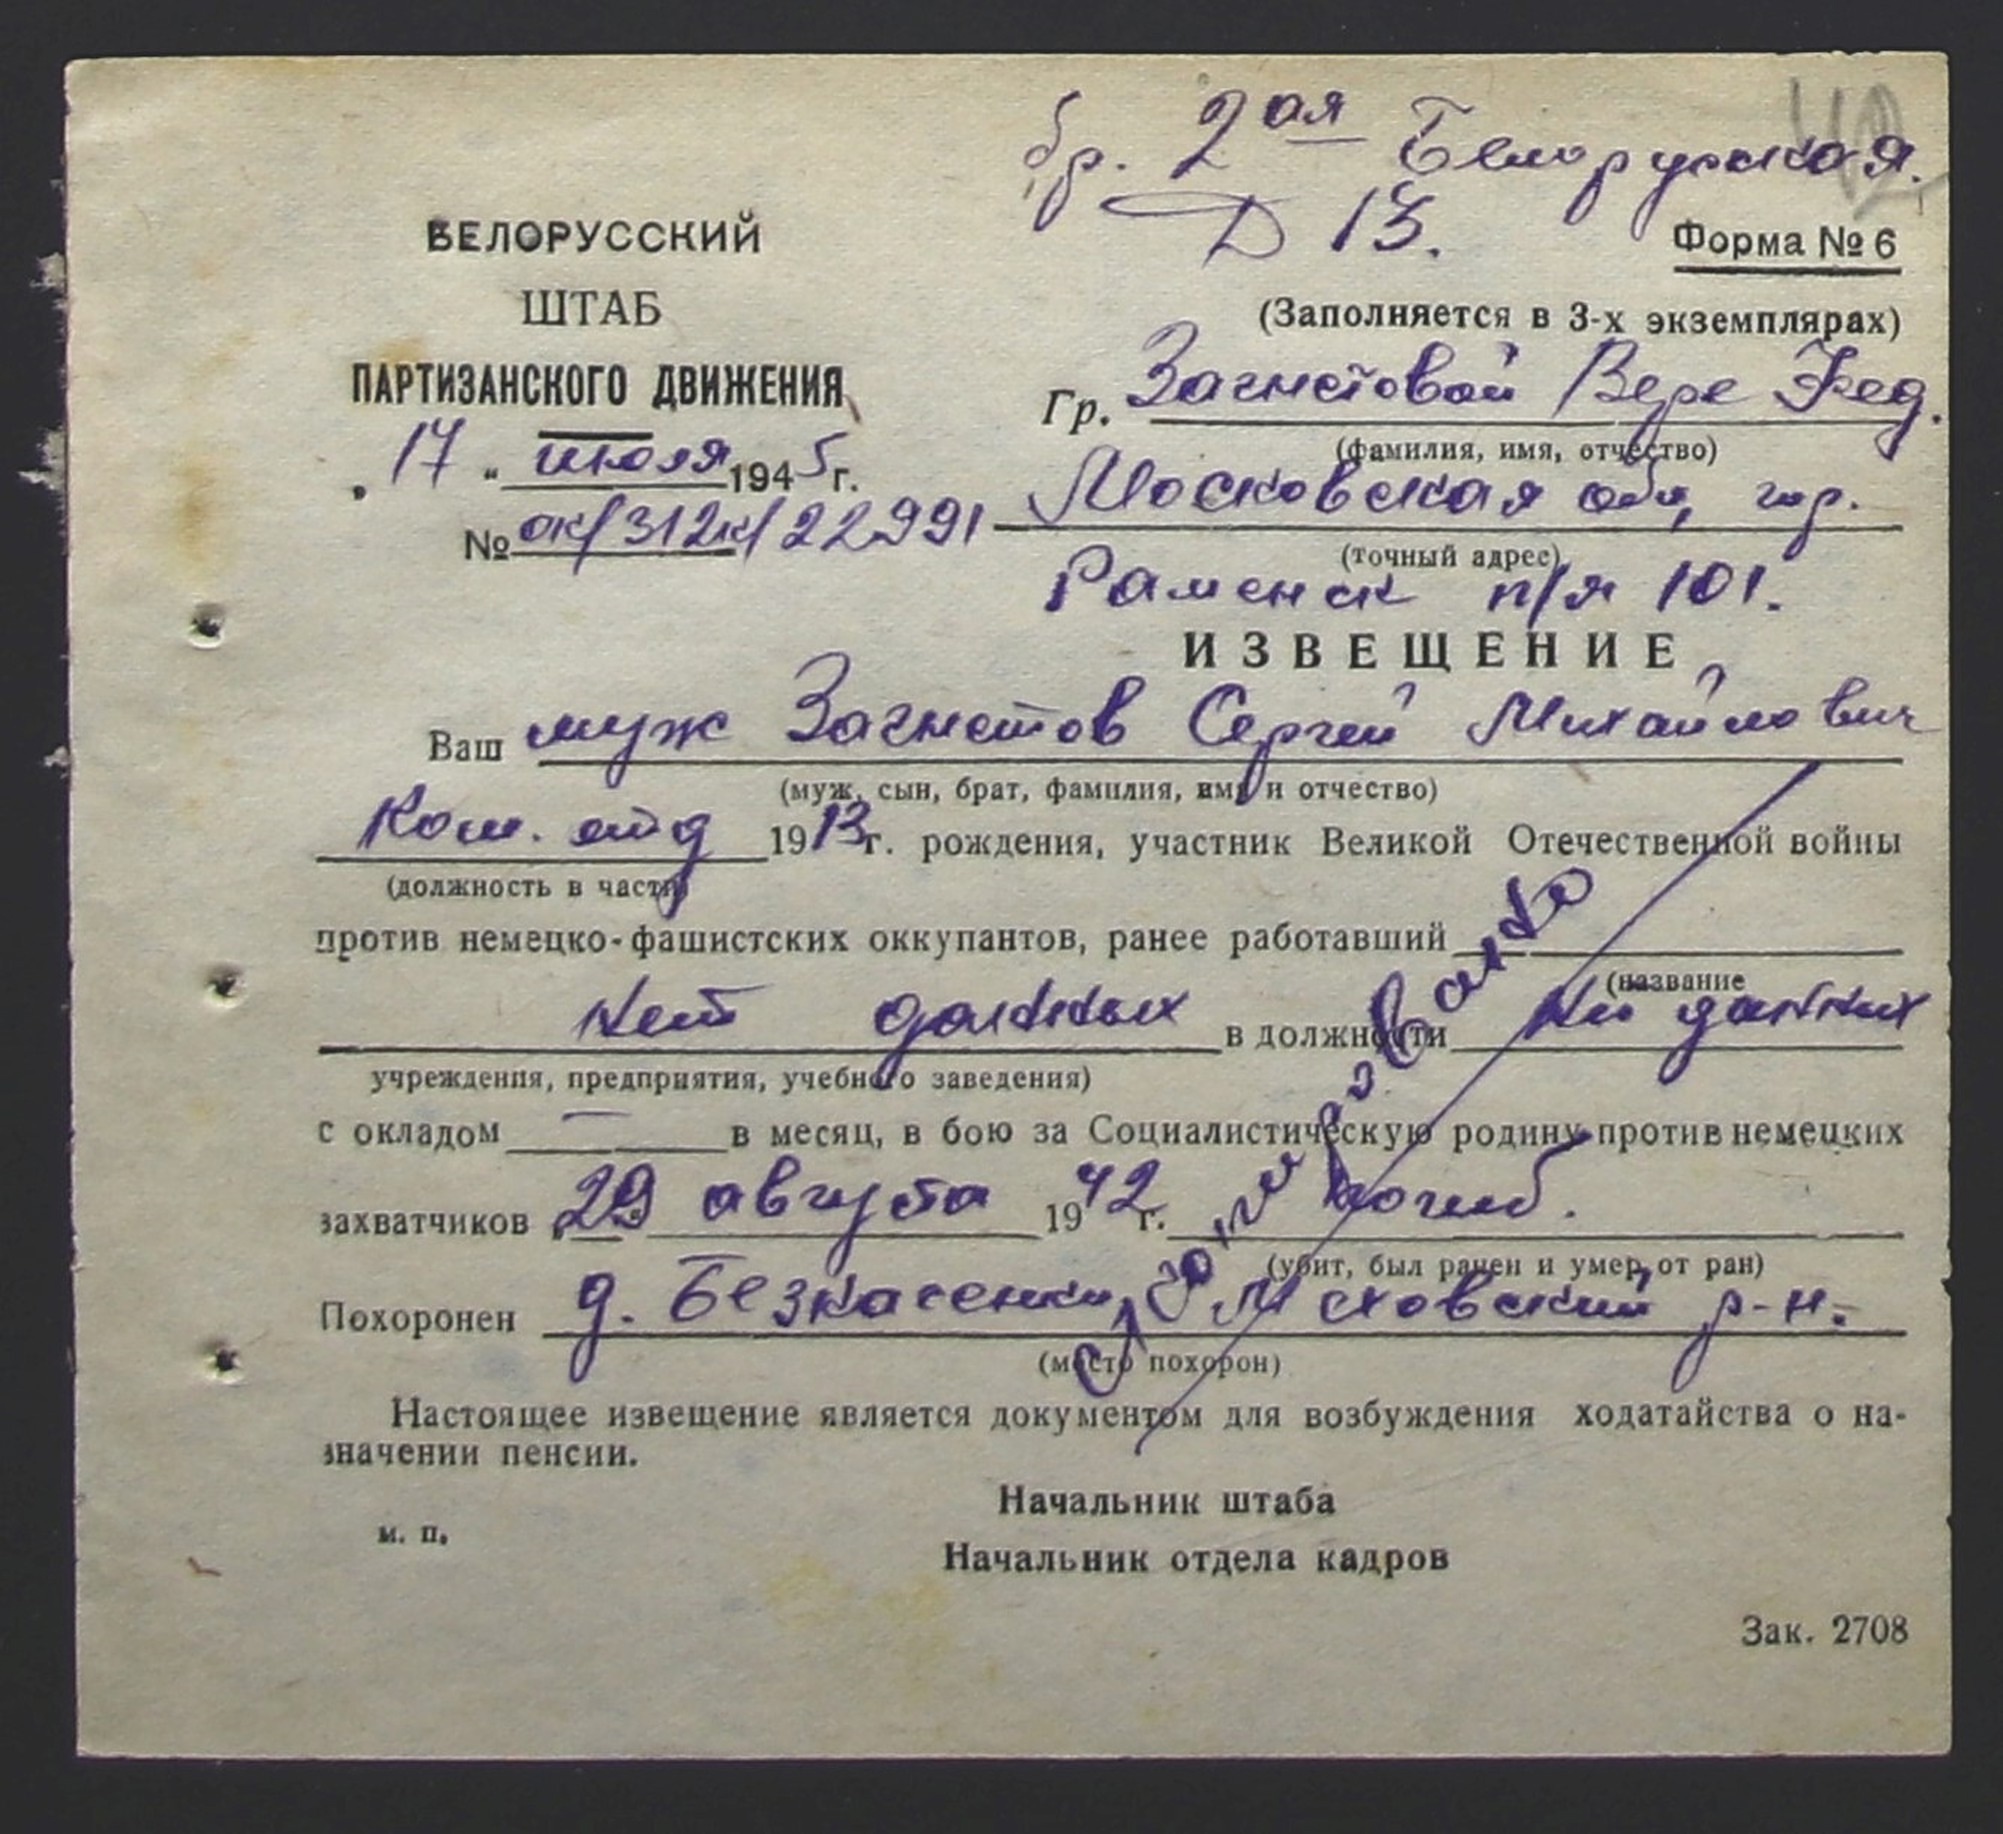 бр. 2ая Белорусская.
Д 13.
42
БЕЛОРУССКИЙ
ШТАБ
ПАРТИЗАНСКОГО ДВИЖЕНИЯ
„17“ июля 1945 г.
№ ок/312к/22991
Форма № 6
(Заполняется в 3-х экземплярах)
Гр. Загнетовой Вере Фед.
(фамилия, имя, отчество)
Московская обл, гор.
(точный адрес)
Раменск п/я 101.
ИЗВЕЩЕНИЕ
Ваш муж Загнетов Сергей Михайлович
(муж, сын, брат, фамилия, имя и отчество)
Ком. отд 1913 г. рождения, участник Великой Отечественной войны
(должность в части)
против немецко-фашистских оккупантов, ранее работавший
(название
нет данных в должности нет данных
учреждения, предприятия, учебного заведения)
с окладом — в месяц, в бою за Социалистическую родину против немецких
захватчиков „29 августа 1942 г. погиб.
(убит, был ранен и умер от ран)
Похоронен д. Безкасенки, Меховский р-н.
(место похорон)
Настоящее извещение является документом для возбуждения ходатайства о на-
значении пенсии.
Начальник штаба
м. п.
Начальник отдела кадров
Зак. 2708